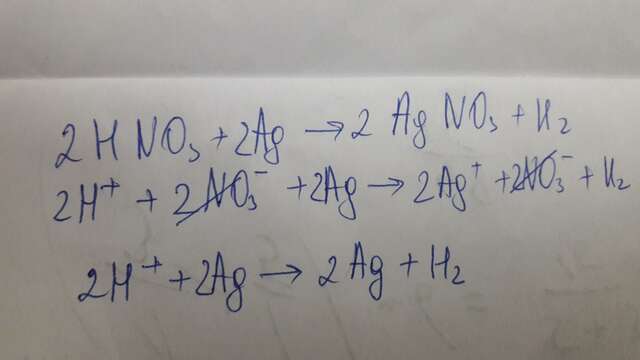 2HNO₃ + 2Ag → 2AgNO₃ + H₂
2H⁺ + 2NO₃⁻ + 2Ag → 2Ag⁺ + 2NO₃⁻ + H₂
2H⁺ + 2Ag → 2Ag + H₂